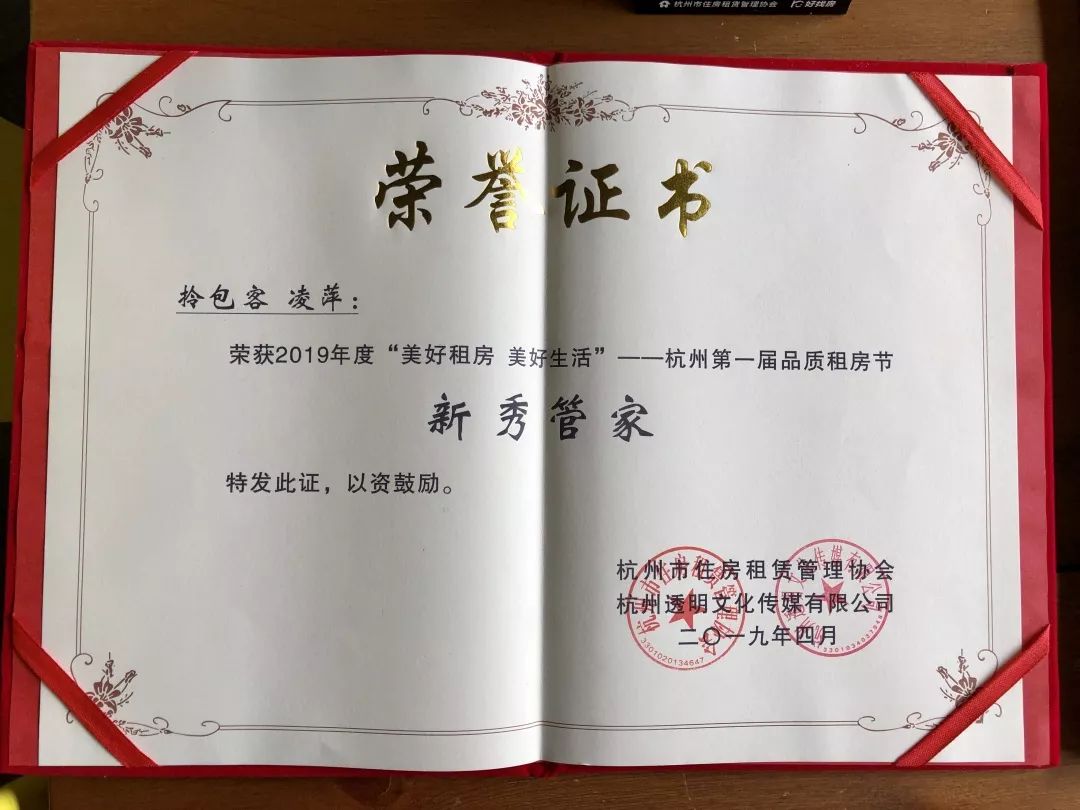 杭州市住房租赁管理协会 好找房
荣誉证书
拎包客 凌萍：
荣获2019年度“美好租房 美好生活”——杭州第一届品质租房节
新秀管家
特发此证，以资鼓励。
杭州市住房租赁管理协会
杭州透明文化传媒有限公司
二〇一九年四月
杭州市住房租赁管理协会
3301020134647